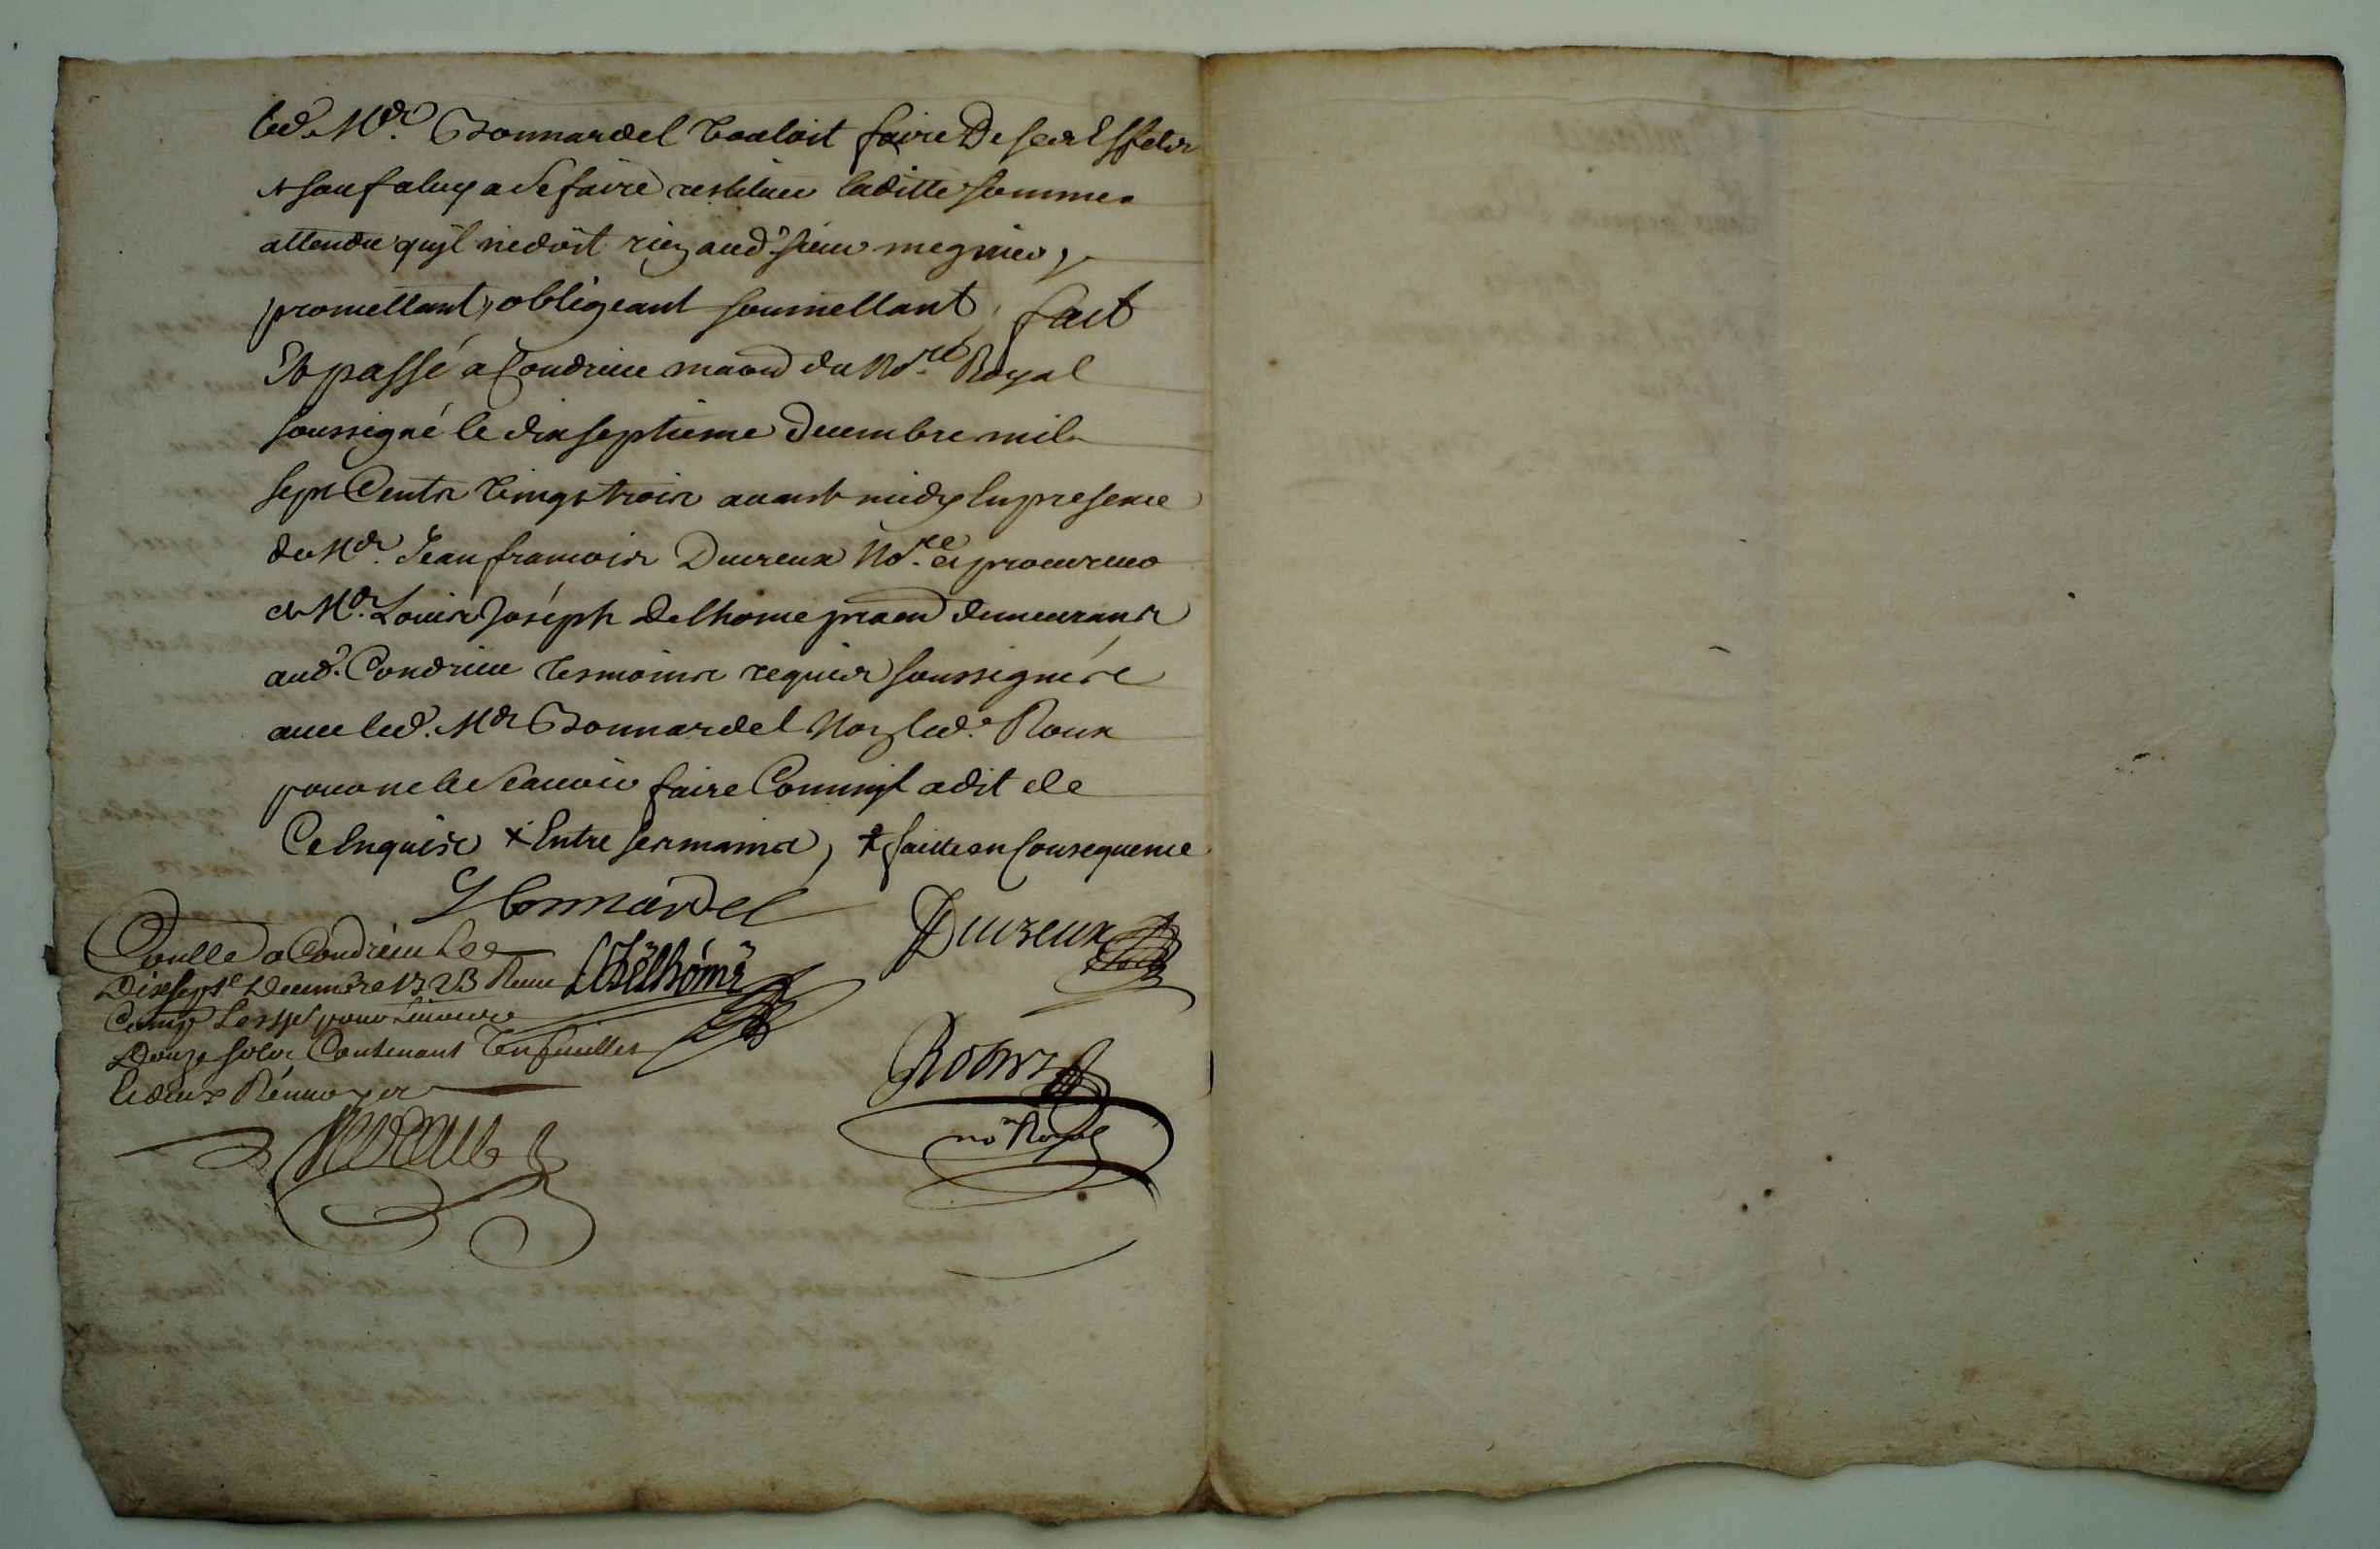 led. Mr. Bonnardel vouloit faire De ses Effets
& sauf aluy a se faire restituer laditte somme
attendu quyl ne doit rien aud. sieur megnier,
promettant, obligeant soumettant, fait
Et passé a Condrieu maon du No.re Royal
soussigné le dix septieme Decembre mil
sept Cents vingt trois auant midy En presence
de Mr. Jean francois Ducreux No.re & procureur
& Mr. Louis Joséph Delhome praen demeurants
aud. Condrieu tesmoins requis soussignés
auec led. Mr Bonnardel Non led. Roux
pour ne le scauoir faire Comm'yl a dit de
Ce Enquis x Entre ses mains, x faitte en Consequence
Bonnardel
Ducreux
Conllé a Condrieu Le
Dix sept.e Decembre 1723 Receu
LJDelhome
Douze sols Contenant
no.re Royal